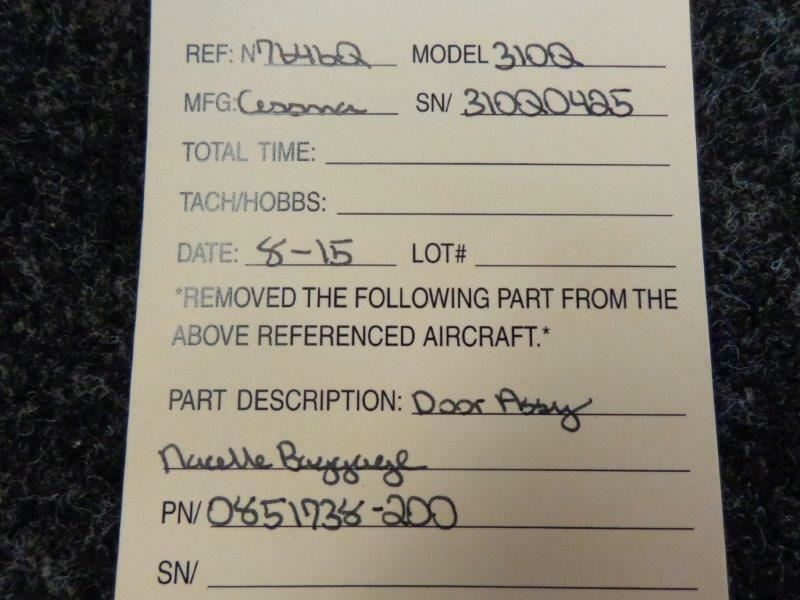 REF: N7646Q MODEL 310Q
MFG: Cessna SN/ 310Q0425
TOTAL TIME:
TACH/HOBBS:
DATE: 8-15 LOT#
*REMOVED THE FOLLOWING PART FROM THE
ABOVE REFERENCED AIRCRAFT.*
PART DESCRIPTION: Door Assy
Nacelle Baggage
PN/ 0851738-200
SN/